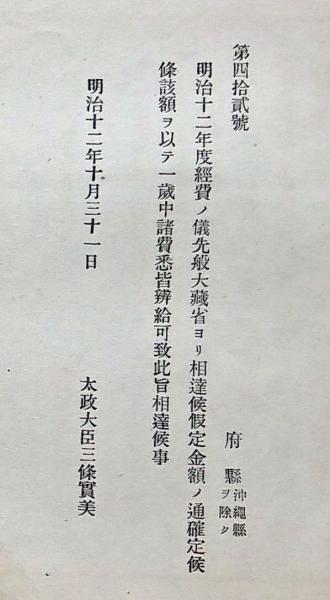 第四拾貳號
府縣沖繩縣ヲ除ク
明治十二年度經費ノ儀先般大藏省ヨリ相達候假定金額ノ通確定候
條該額ヲ以テ一歲中諸費悉皆辨給可致此旨相達候事
明治十二年十月三十一日
太政大臣三條實美